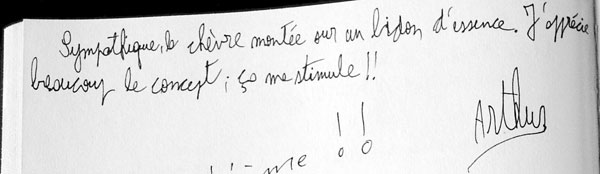 Sympathique, la chèvre montée sur un bidon d'essence. J'apprécie
beaucoup le concept; ça me stimule !!
Arthur
!!